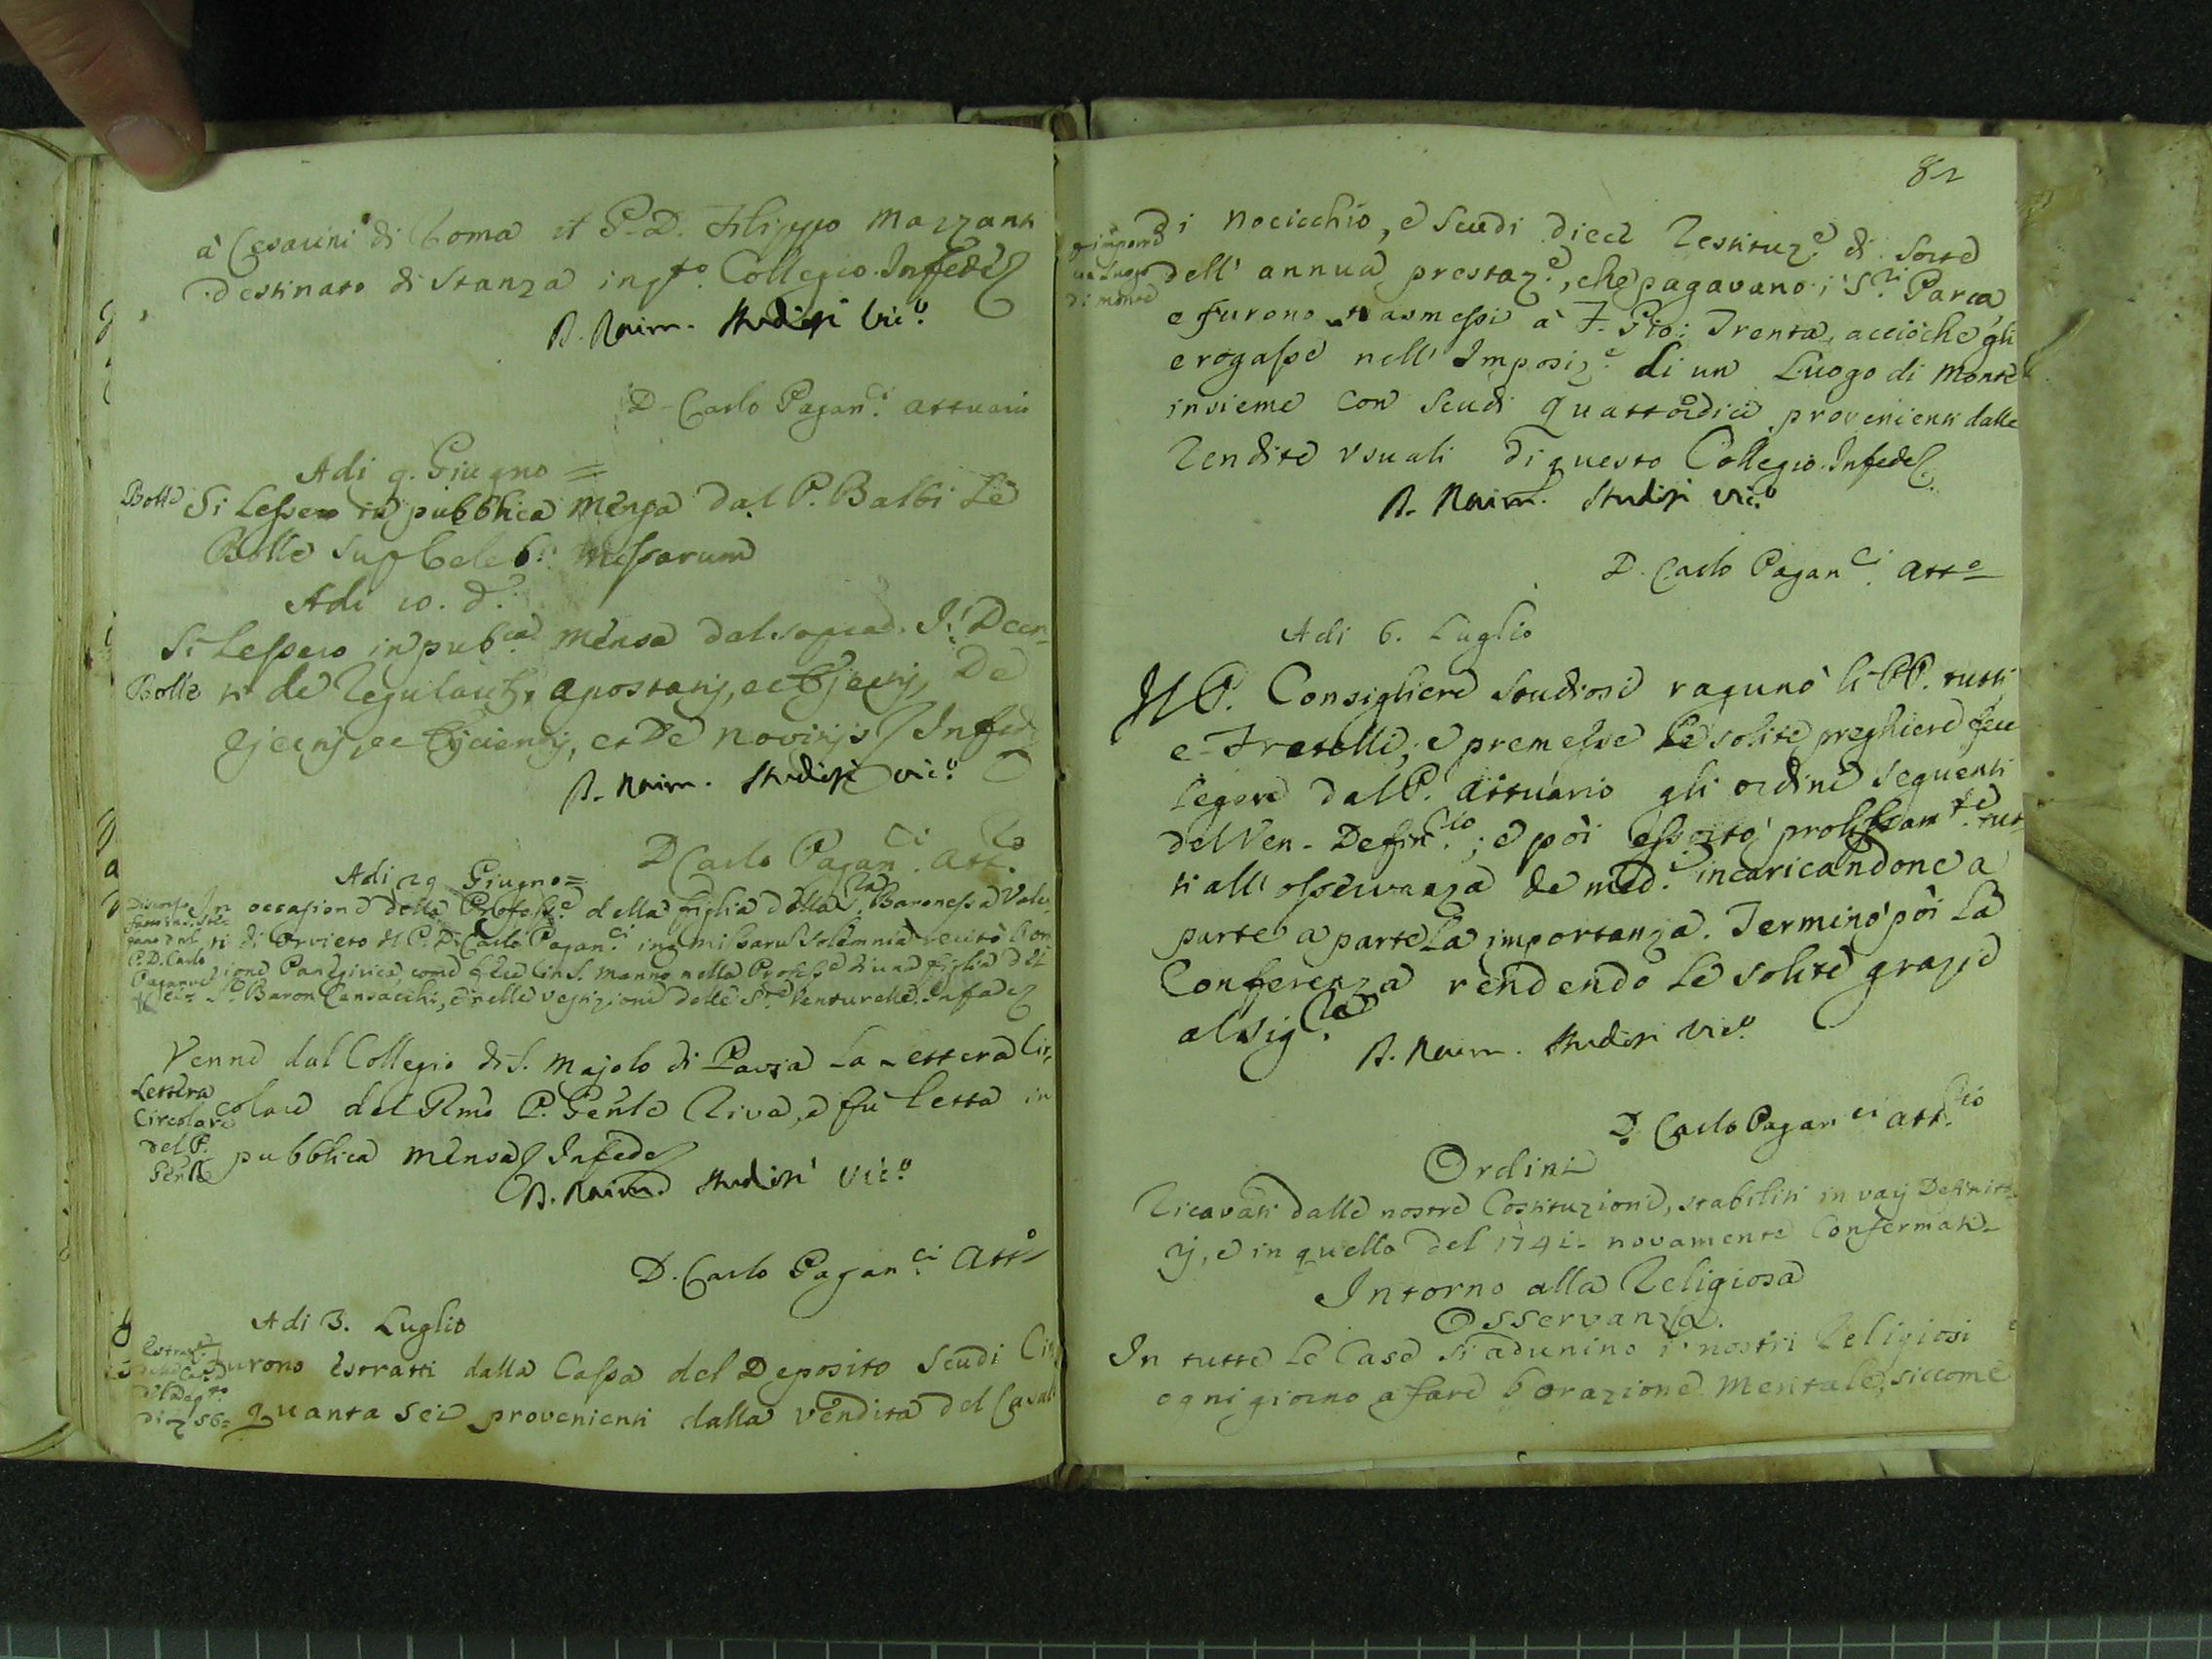 à Cesarini di Roma il P. D. Filippo Mazzanti
destinato di stanza in q.to Collegio. In fede
D. Raim. Studiosi Vic.o
D. Carlo Pagan.ci attuario
Adi 9. Giugno =
Bolle
Si lessero in pubblica mensa dal P. Balbi le
Bolle sup Celeb. missarum
Adi 10. d.o
Si lessero in pub.ca mensa dal sop.ad. I. Decre-
Bolle
ti de Regularib. apostatis, et ejectis, De
ejectis, et ejiciendis, et De novitijs. In fede
D. Raim. Studiosi vic.o
D. Carlo Pagan.ci att.o
Adi 29 Giugno =
Discorso
fatto in
P. D. Carlo
In occasione della Profess.e della figlia della S.ra Baronessa Valen-
ti di Orvieto il P. D. Carlo Pagan.ci inter missarum solemnia recitò l'or-
zione Panegirica, come fece in S. Manno nella Profess.e di una figlia del
S.r Baron Cansacchi, e nelle vestizione delle S.re Venturelle. In fede
Venne dal Collegio di S. Majolo di Pavia la Lettera Cir-
Lettera
Circolare
del P.
Gen.le
colare del Rmo P. Gen.le Riva, e fu letta in
pubblica mensa. In fede
D. Raim. Studiosi Vic.o
D. Carlo Pagan.ci Att.o
Adi 3. Luglio
Furono estratti dalla Cassa del Deposito scudi Cin
quanta sei provenienti dalla vendita del Casal
82
imporre
un Luogo
di monte
di Nocicchio, e scudi dieci restituz.e di sorte
dell' annua prestaz.e, che pagavano i S.ri Parca,
e furono trasmessi à F. Gio: Trenta, acciòche gli
erogasse nell' Imposiz.e di un Luogo di Monte
insieme con scudi quattordici provenienti dalle
rendite usuali di questo Collegio. In fede
D. Raim. Studiosi vic.o
D. Carlo Pagan.ci att.o
Adi 6. Luglio
Il P. Consigliere Studiosi ragunò li PP. tutti
e Fratelli; e premesse le solite preghiere fece
legere dal P. attuario gli ordini seguenti
del Ven. Defin.rio; e pòi essortò prolissam.te tut-
ti all' osservanza de med.i incaricandone a
parte a parte la importanza. Terminò pòi la
Conferenza rendendo le solite grazie
al Sig.re
D. Raim. Studiosi Vic.o
D. Carlo Pagan.ci att.rio
Ordini
Ricavati dalle nostre Costituzioni, stabiliti in varj Definito-
rj, e in quello del 1741. novamente confermati.
Intorno alla Religiosa
Osservanza.
In tutte le Case si adunino i nostri Religiosi
ogni giorno a fare l'orazione mentale, siccome